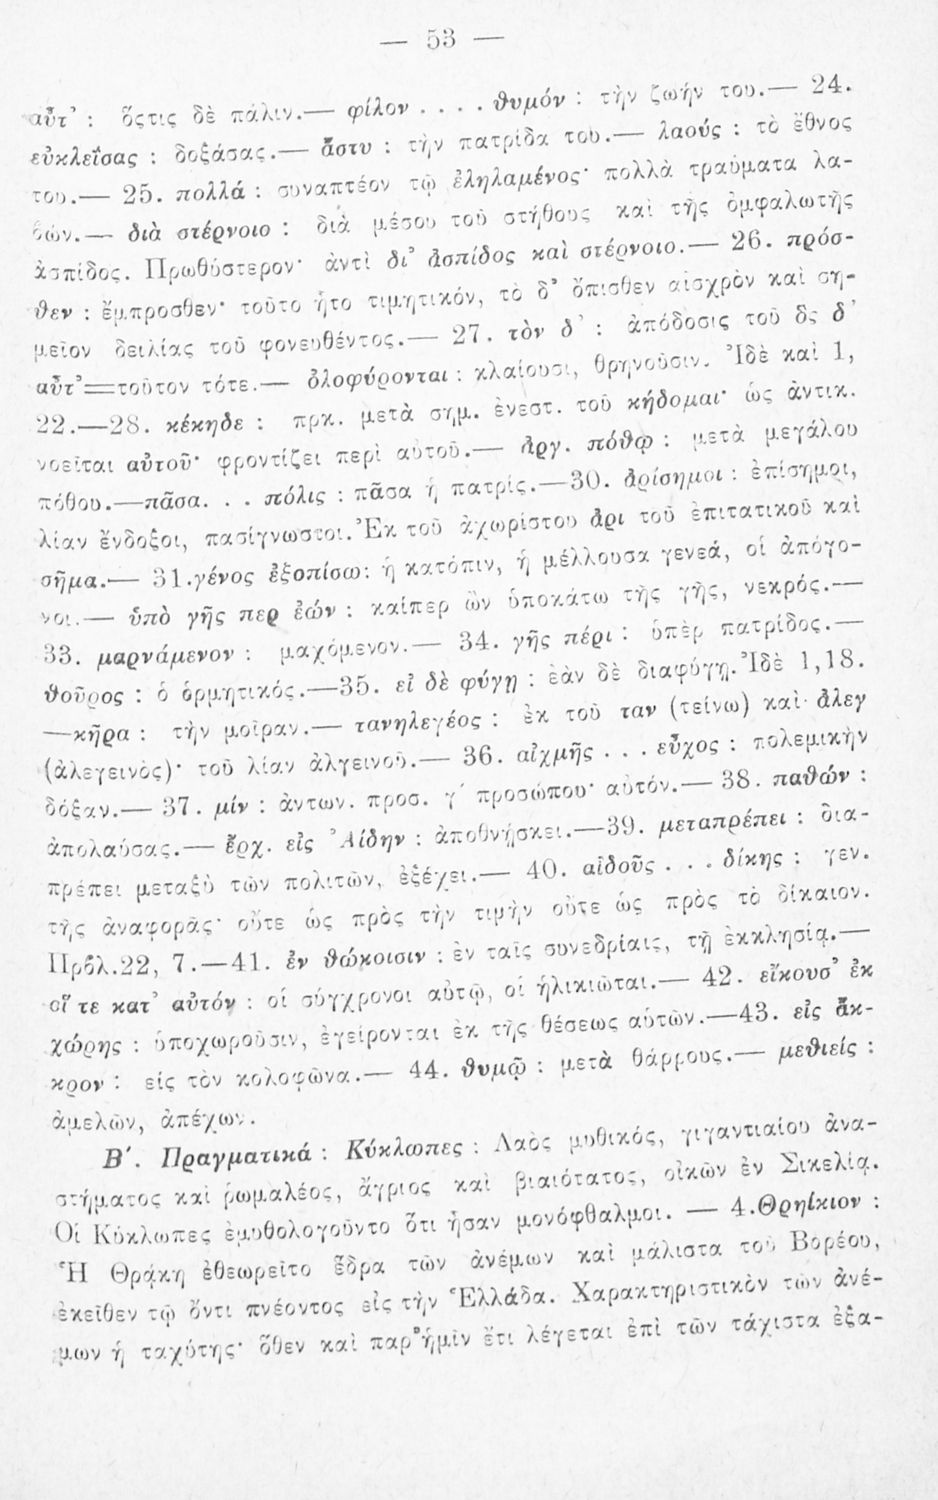 — 53 —
αὖτ' : ὅςτις δὲ πάλιν.— φίλον . . . . θυμόν : τὴν ζωήν του.— 24.
εὐκλεΐσας : δοξάσας.— ἄστυ : τὴν πατρίδα του.— λαούς : τὸ ἔθνος
του.— 25. πολλά : συναπτέον τῷ ἐληλαμένος· πολλὰ τραύματα λα-
βών.— διὰ στέρνοιο : διὰ μέσου τοῦ στήθους καὶ τῆς ὀμφαλωτῆς
ἀσπίδος. Πρωθύστερον· ἀντὶ δι' ἀσπίδος καὶ στέρνοιο.— 26. πρόσ-
θεν : ἔμπροσθεν· τοῦτο ἦτο τιμητικόν, τὸ δ' ὄπισθεν αἰσχρὸν καὶ ση-
μεῖον δειλίας τοῦ φονευθέντος.— 27. τὸν δ' : ἀπόδοσις τοῦ ὃς δ'
αὖτ'=τοῦτον τότε.— ὀλοφύρονται : κλαίουσι, θρηνοῦσιν. Ἰδὲ καὶ 1,
22.—28. κέκηδε : πρκ. μετὰ σημ. ἐνεστ. τοῦ κήδομαι· ὡς ἀντικ.
νοεῖται αὐτοῦ· φροντίζει περὶ αὐτοῦ.— ἀργ. πόθῳ : μετὰ μεγάλου
πόθου.—πᾶσα. . . πόλις : πᾶσα ἡ πατρίς.—30. ἀρίσημοι : ἐπίσημοι,
λίαν ἔνδοξοι, πασίγνωστοι. Ἐκ τοῦ ἀχωρίστου ἀρι τοῦ ἐπιτατικοῦ καὶ
σῆμα.— 31.γένος ἐξοπίσω: ἡ κατόπιν, ἡ μέλλουσα γενεά, οἱ ἀπόγο-
νοι.— ὑπὸ γῆς περ ἐών : καίπερ ὢν ὑποκάτω τῆς γῆς, νεκρός.—
33. μαρνάμενον : μαχόμενον.— 34. γῆς πέρι : ὑπὲρ πατρίδος.—
θοῦρος : ὁ ὁρμητικός.—35. εἰ δὲ φύγῃ : ἐὰν δὲ διαφύγῃ. Ἰδὲ 1,18.
—κῆρα : τὴν μοῖραν.— τανηλεγέος : ἐκ τοῦ ταν (τείνω) καὶ ἀλεγ
(ἀλεγεινὸς)· τοῦ λίαν ἀλγεινοῦ.— 36. αἰχμῆς . . . εὖχος : πολεμικὴν
δόξαν.— 37. μίν : ἀντων. προσ. γ' προσώπου· αὐτόν.— 38. παθών :
ἀπολαύσας.— ἔρχ. εἰς Ἀίδην : ἀποθνήσκει.—39. μεταπρέπει : δια-
πρέπει μεταξὺ τῶν πολιτῶν, ἐξέχει.— 40. αἰδοῦς . . . δίκης : γεν.
τῆς ἀναφορᾶς· οὔτε ὡς πρὸς τὴν τιμὴν οὔτε ὡς πρὸς τὸ δίκαιον.
Πρβλ.22, 7.—41. ἐν θώκοισιν : ἐν ταῖς συνεδρίαις, τῇ ἐκκλησίᾳ.—
οἵ τε κατ' αὐτόν : οἱ σύγχρονοι αὐτῷ, οἱ ἡλικιῶται.— 42. εἴκουσ' ἐκ
χώρης : ὑποχωροῦσιν, ἐγείρονται ἐκ τῆς θέσεως αὑτῶν.—43. εἰς ἄκ-
κρον : εἰς τὸν κολοφῶνα.— 44. θυμῷ : μετὰ θάρρους.— μεθιείς :
ἀμελῶν, ἀπέχων.
Β'. Πραγματικά : Κύκλωπες : Λαὸς μυθικός, γιγαντιαίου ἀνα-
στήματος καὶ ῥωμαλέος, ἄγριος καὶ βιαιότατος, οἰκῶν ἐν Σικελίᾳ.
Οἱ Κύκλωπες ἐμυθολογοῦντο ὅτι ἦσαν μονόφθαλμοι. — 4.Θρηίκιον :
Ἡ Θρᾴκη ἐθεωρεῖτο ἕδρα τῶν ἀνέμων καὶ μάλιστα τοῦ Βορέου,
ἐκεῖθεν τῷ ὄντι πνέοντος εἰς τὴν Ἑλλάδα. Χαρακτηριστικὸν τῶν ἀνέ-
μων ἡ ταχύτης· ὅθεν καὶ παρ' ἡμῖν ἔτι λέγεται ἐπὶ τῶν τάχιστα ἐξα-